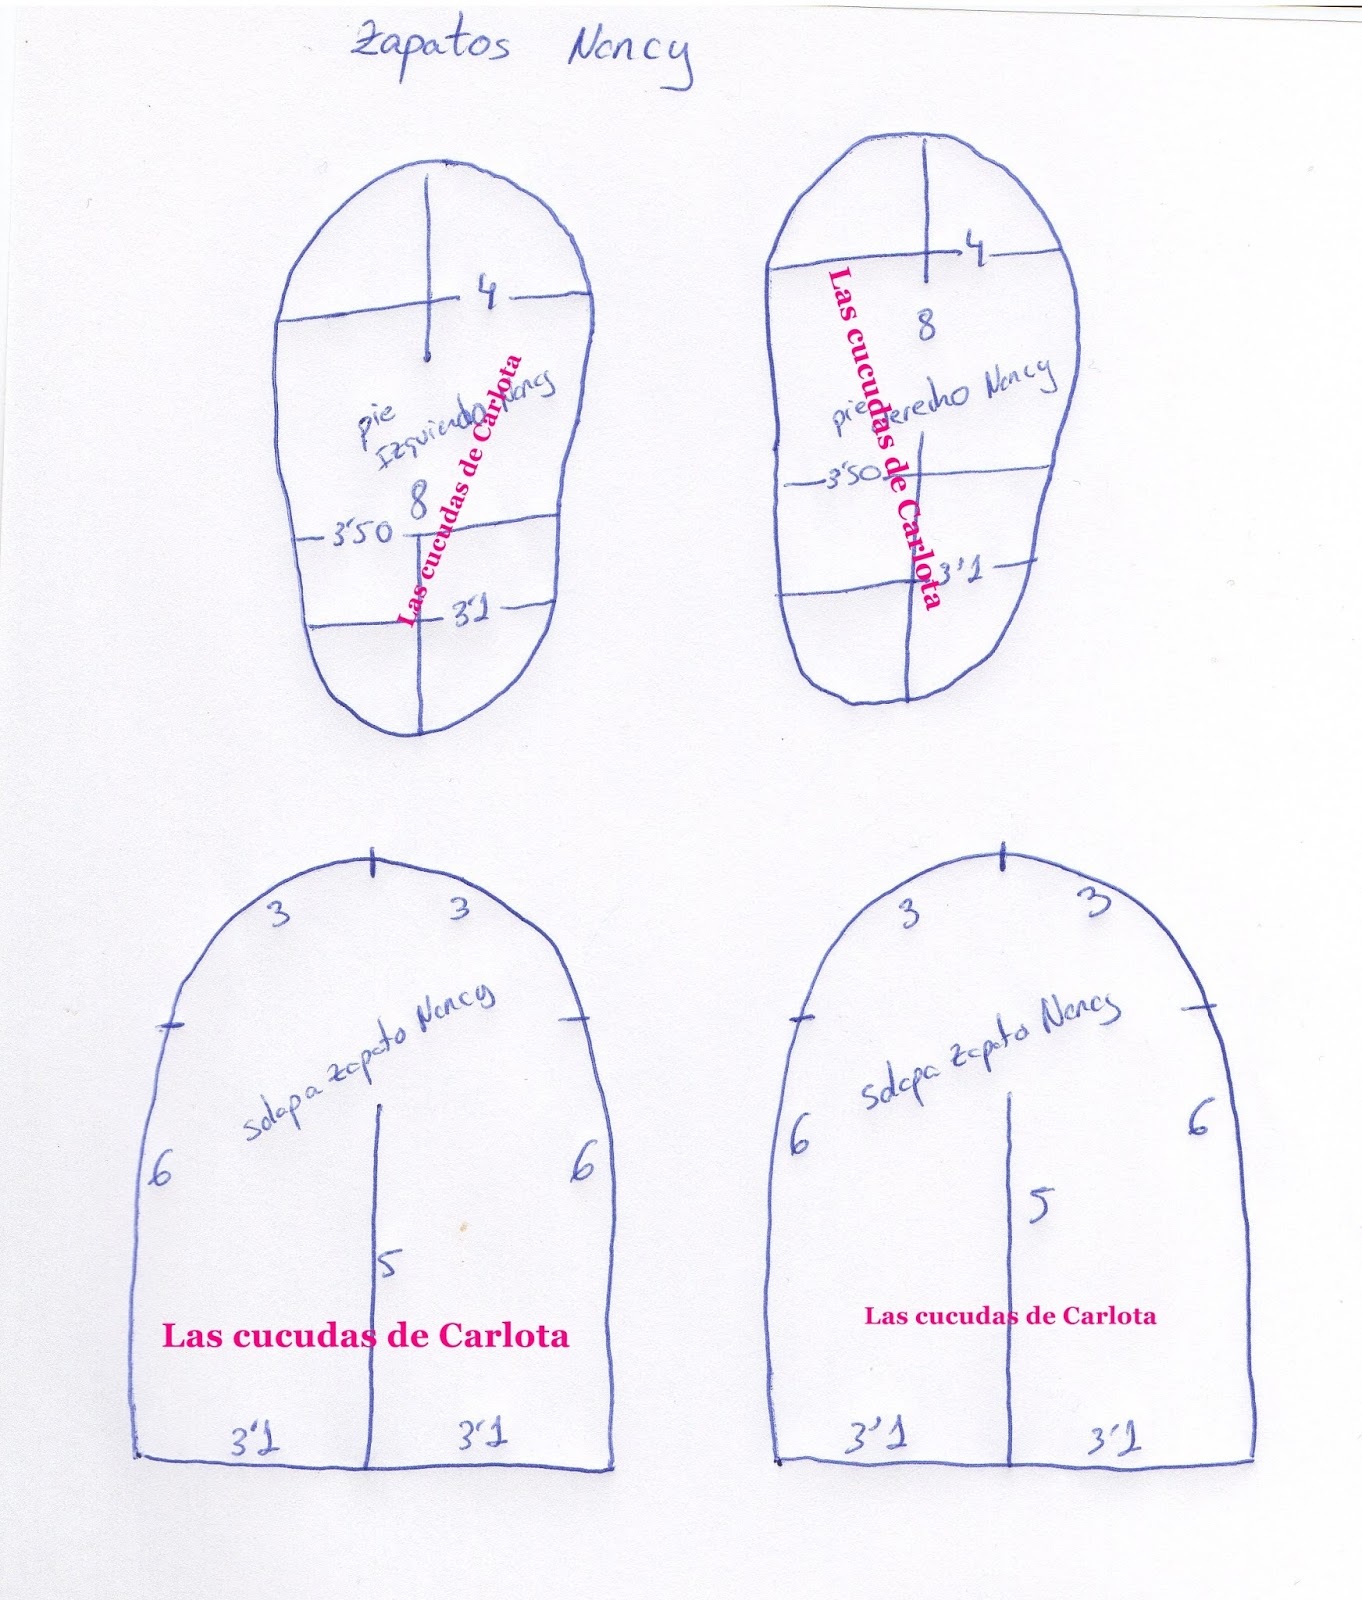 Zapatos Nancy
4
pie
Izquierdo Nancy
8
3'50
3'1
Las cucudas de Carlota
4
8
pie derecho Nancy
3'50
3'1
Las cucudas de Carlota
3 3
solapa zapato Nancy
6 6
5
Las cucudas de Carlota
3'1 3'1
3 3
solapa zapato Nancy
6 6
5
Las cucudas de Carlota
3'1 3'1